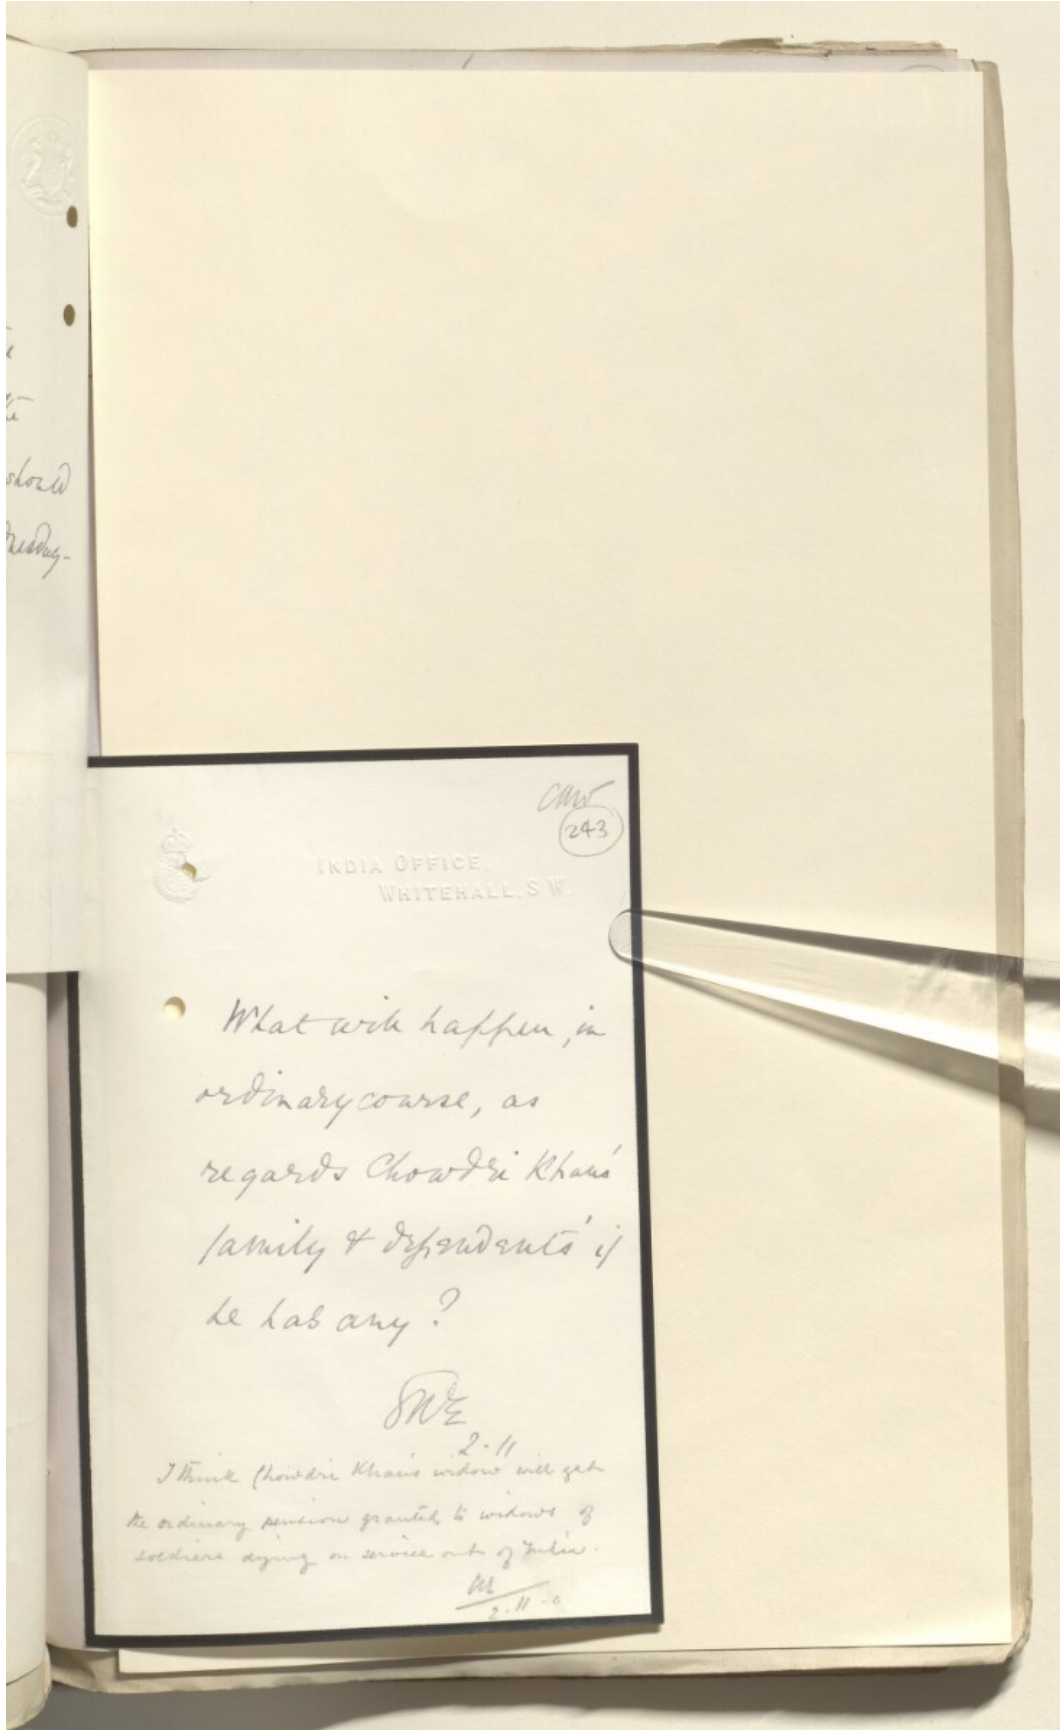 should
CAW
243
INDIA OFFICE,
WHITEHALL, S.W.
What will happen, in
ordinary course, as
regards Chowdri Khan's
family & dependents' if
he has any?
2·11
I think Chowdri Khan's widow will get
the ordinary pension granted to widows of
soldiers dying on service out of India.
2·11